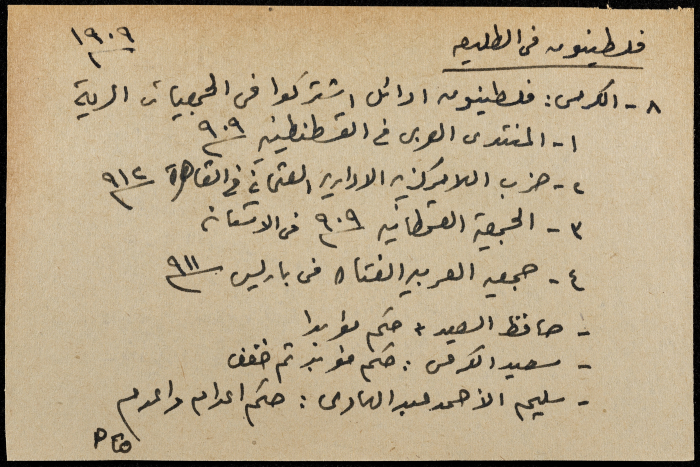 ١٩٠٩
فلسطينيون في الطليعه
٨ - الكرمل: فلسطينيون اوائل اشتركوا في الجمعيات السرية
١ - المنتدى العربي في القسطنطينيه ٩٠٩
٢ - حزب اللامركزيه الاداريه العثماني في القاهرة ٩١٢
٣ - الجمعية القحطانيه ٩٠٩ في الاستانه
٤ - جمعيه العربيه الفتاه في باريس ٩١١
- حافظ السعيد + حكم مؤبدا
- سعيد الكرمي: حكم مؤبد ثم خفف
- سليم الاحمد عبد الهادي: حكم اعدام واعدم